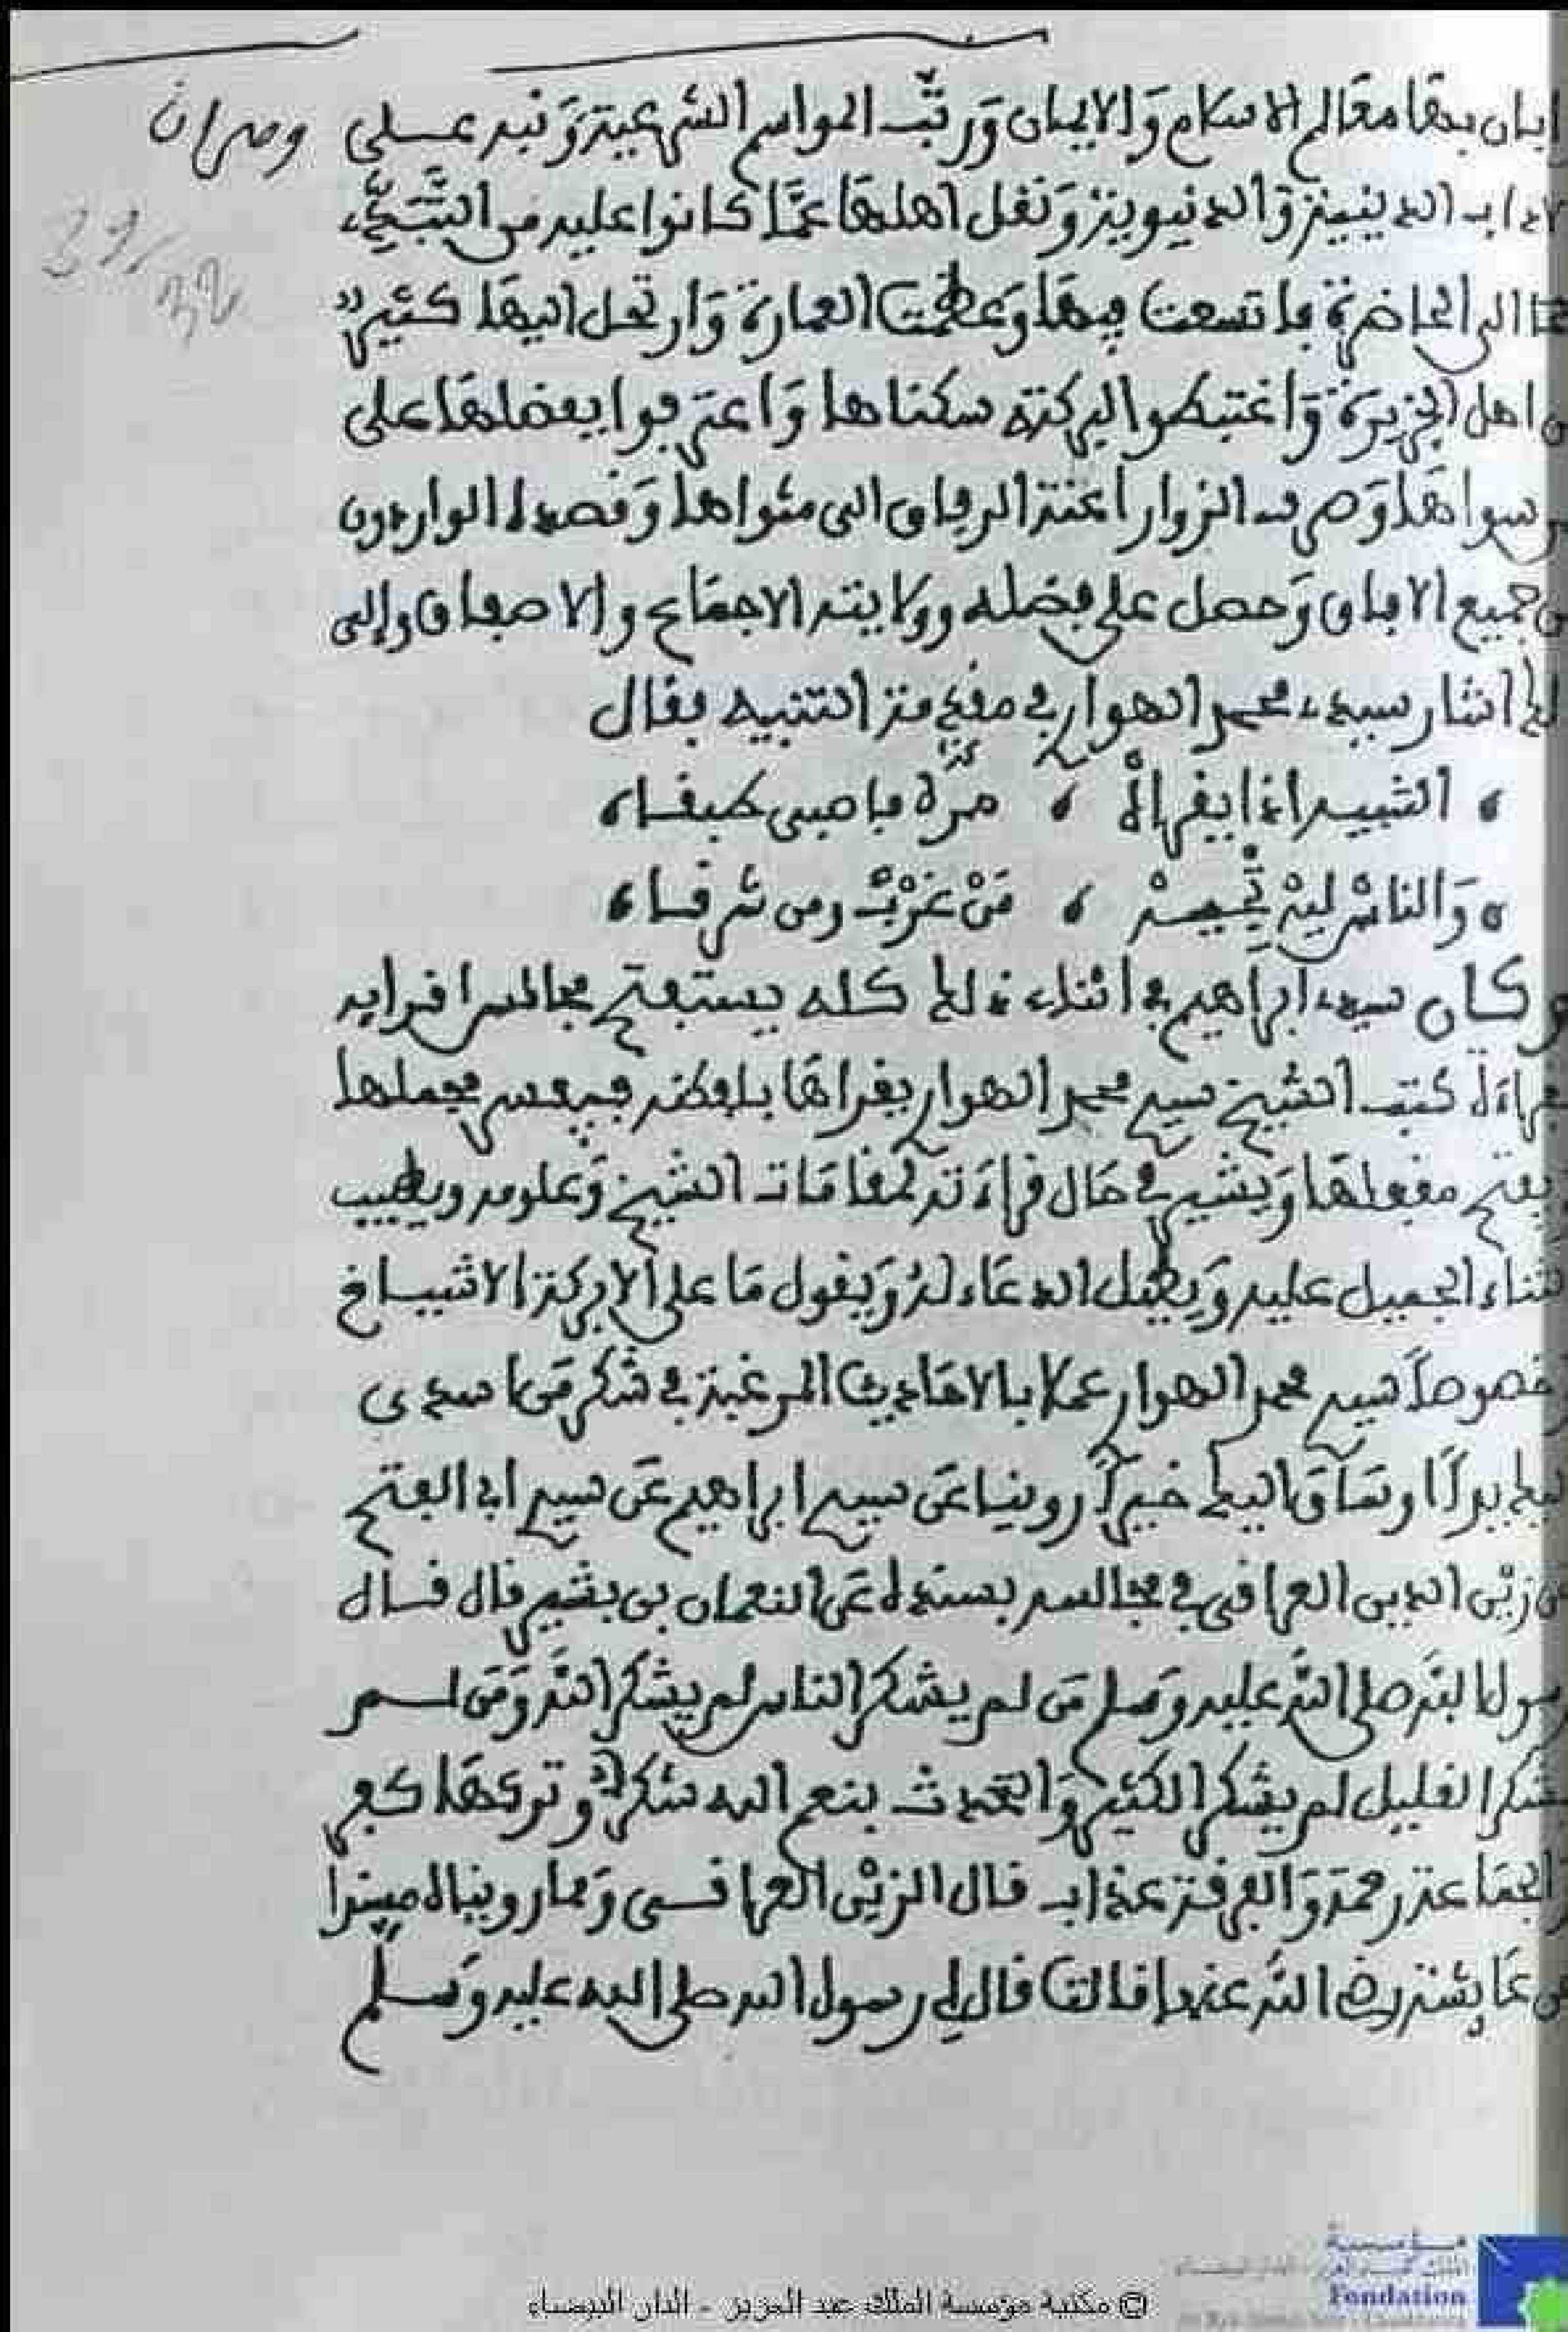 بان بها معالم الاسلام وَالايمان وَرتّب المواسم الشرعية وَنبه عـلى وهران
الاداب الدينية وَالدنيوية وَنقل اهلها عمَّا كانوا عليه من التَّبَدِّي
31/32
الى الحاضرة فاتسعت فيها وَعظمت العمارة وَارتحل اليها كثير
اهل الجزيرة وَاغتبطوا لبركته سكناها وَاعترفوا بفضلها على
سواها وَصرف الزوار اعنة الرفاق الى مثواها وَقصده الواردون
جميع الافاق وَحصل على فضله وولايته الاجماع والاصفاق والى
اشار سيدي محمد الهواري في مقدمة التنبيه فقال
الشيـه اذا يقراه ، مرّة فاصبى طبقـا،
وَالناس ليه تجيـه ، مَنْ غَرْبْ ومن شرقـا،
وكان سيدي ابراهيم في اثناء ذلك كله يستفتح مجالس اقرايه
بقراءة كتب الشيخ سيدي محمد الهواري يقراها بلفظه فيفسر مجملها
يفتح مقفلها وَيشير في حَال قراءته لمقامَات الشيخ وَعلومه ويطيب
الثناء الجميل عليه وَيطيل الدعَاء له وَيقول مَا على الا بركة الاشيـاخ
خصوصا سيدي محمد الهواري عملا بالاحَاديث المرغبة في شكر مَن اسدى
اليك برا او سَاق اليك خيرا روينا عَن سيدي ابراهيم عَن سيدي ابي الفتح
بن زين الدين العراقي في مجالسه بسنده عَن النعمان بن بشير قال قـال
رسول الله صلى الله عليه وَسلم مَن لم يشكر الناس لم يشكر الله وَمَن لـم
يشكر القليل لم يشكر الكثير وَالتحدث بنعم الله شكر وتركها كفر
وَالجمَاعة رحمة وَالفرقة عذاب قال الزين العراقـي وَمما رويناه مسندا
عن عَايشة رضي الله عنها قالت قال لي رسول الله صلى الله عليه وَسلم
مؤسسة
Fondation
© مكتبة مؤسسة الملك عبد العزيز - الدار البيضاء